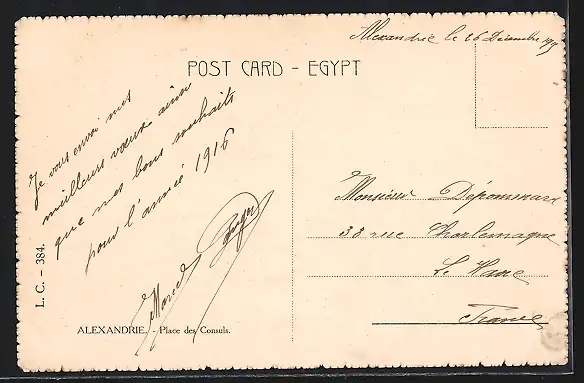 Alexandrie le 26 Décembre
POST CARD - EGYPT
Je vous envoi mes
meilleurs vœux ainsi
que mes bons souhaits
pour l'année 1916
Marcel
Monsieur
38 rue Charlemagne
Le Havre
France
L. C. - 384.
ALEXANDRIE. - Place des Consuls.